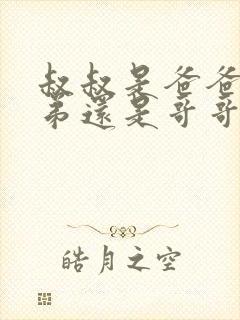 叔叔是爸爸
弟還是哥哥
皓月之空